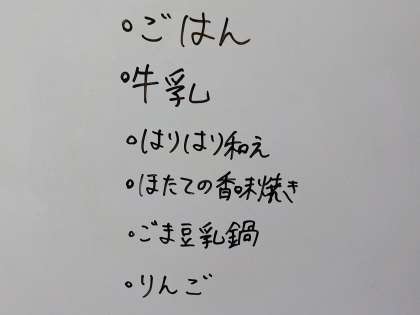 °ごはん
°牛乳
°はりはり和え
°ほたての香味焼き
°ごま豆乳鍋
°りんご